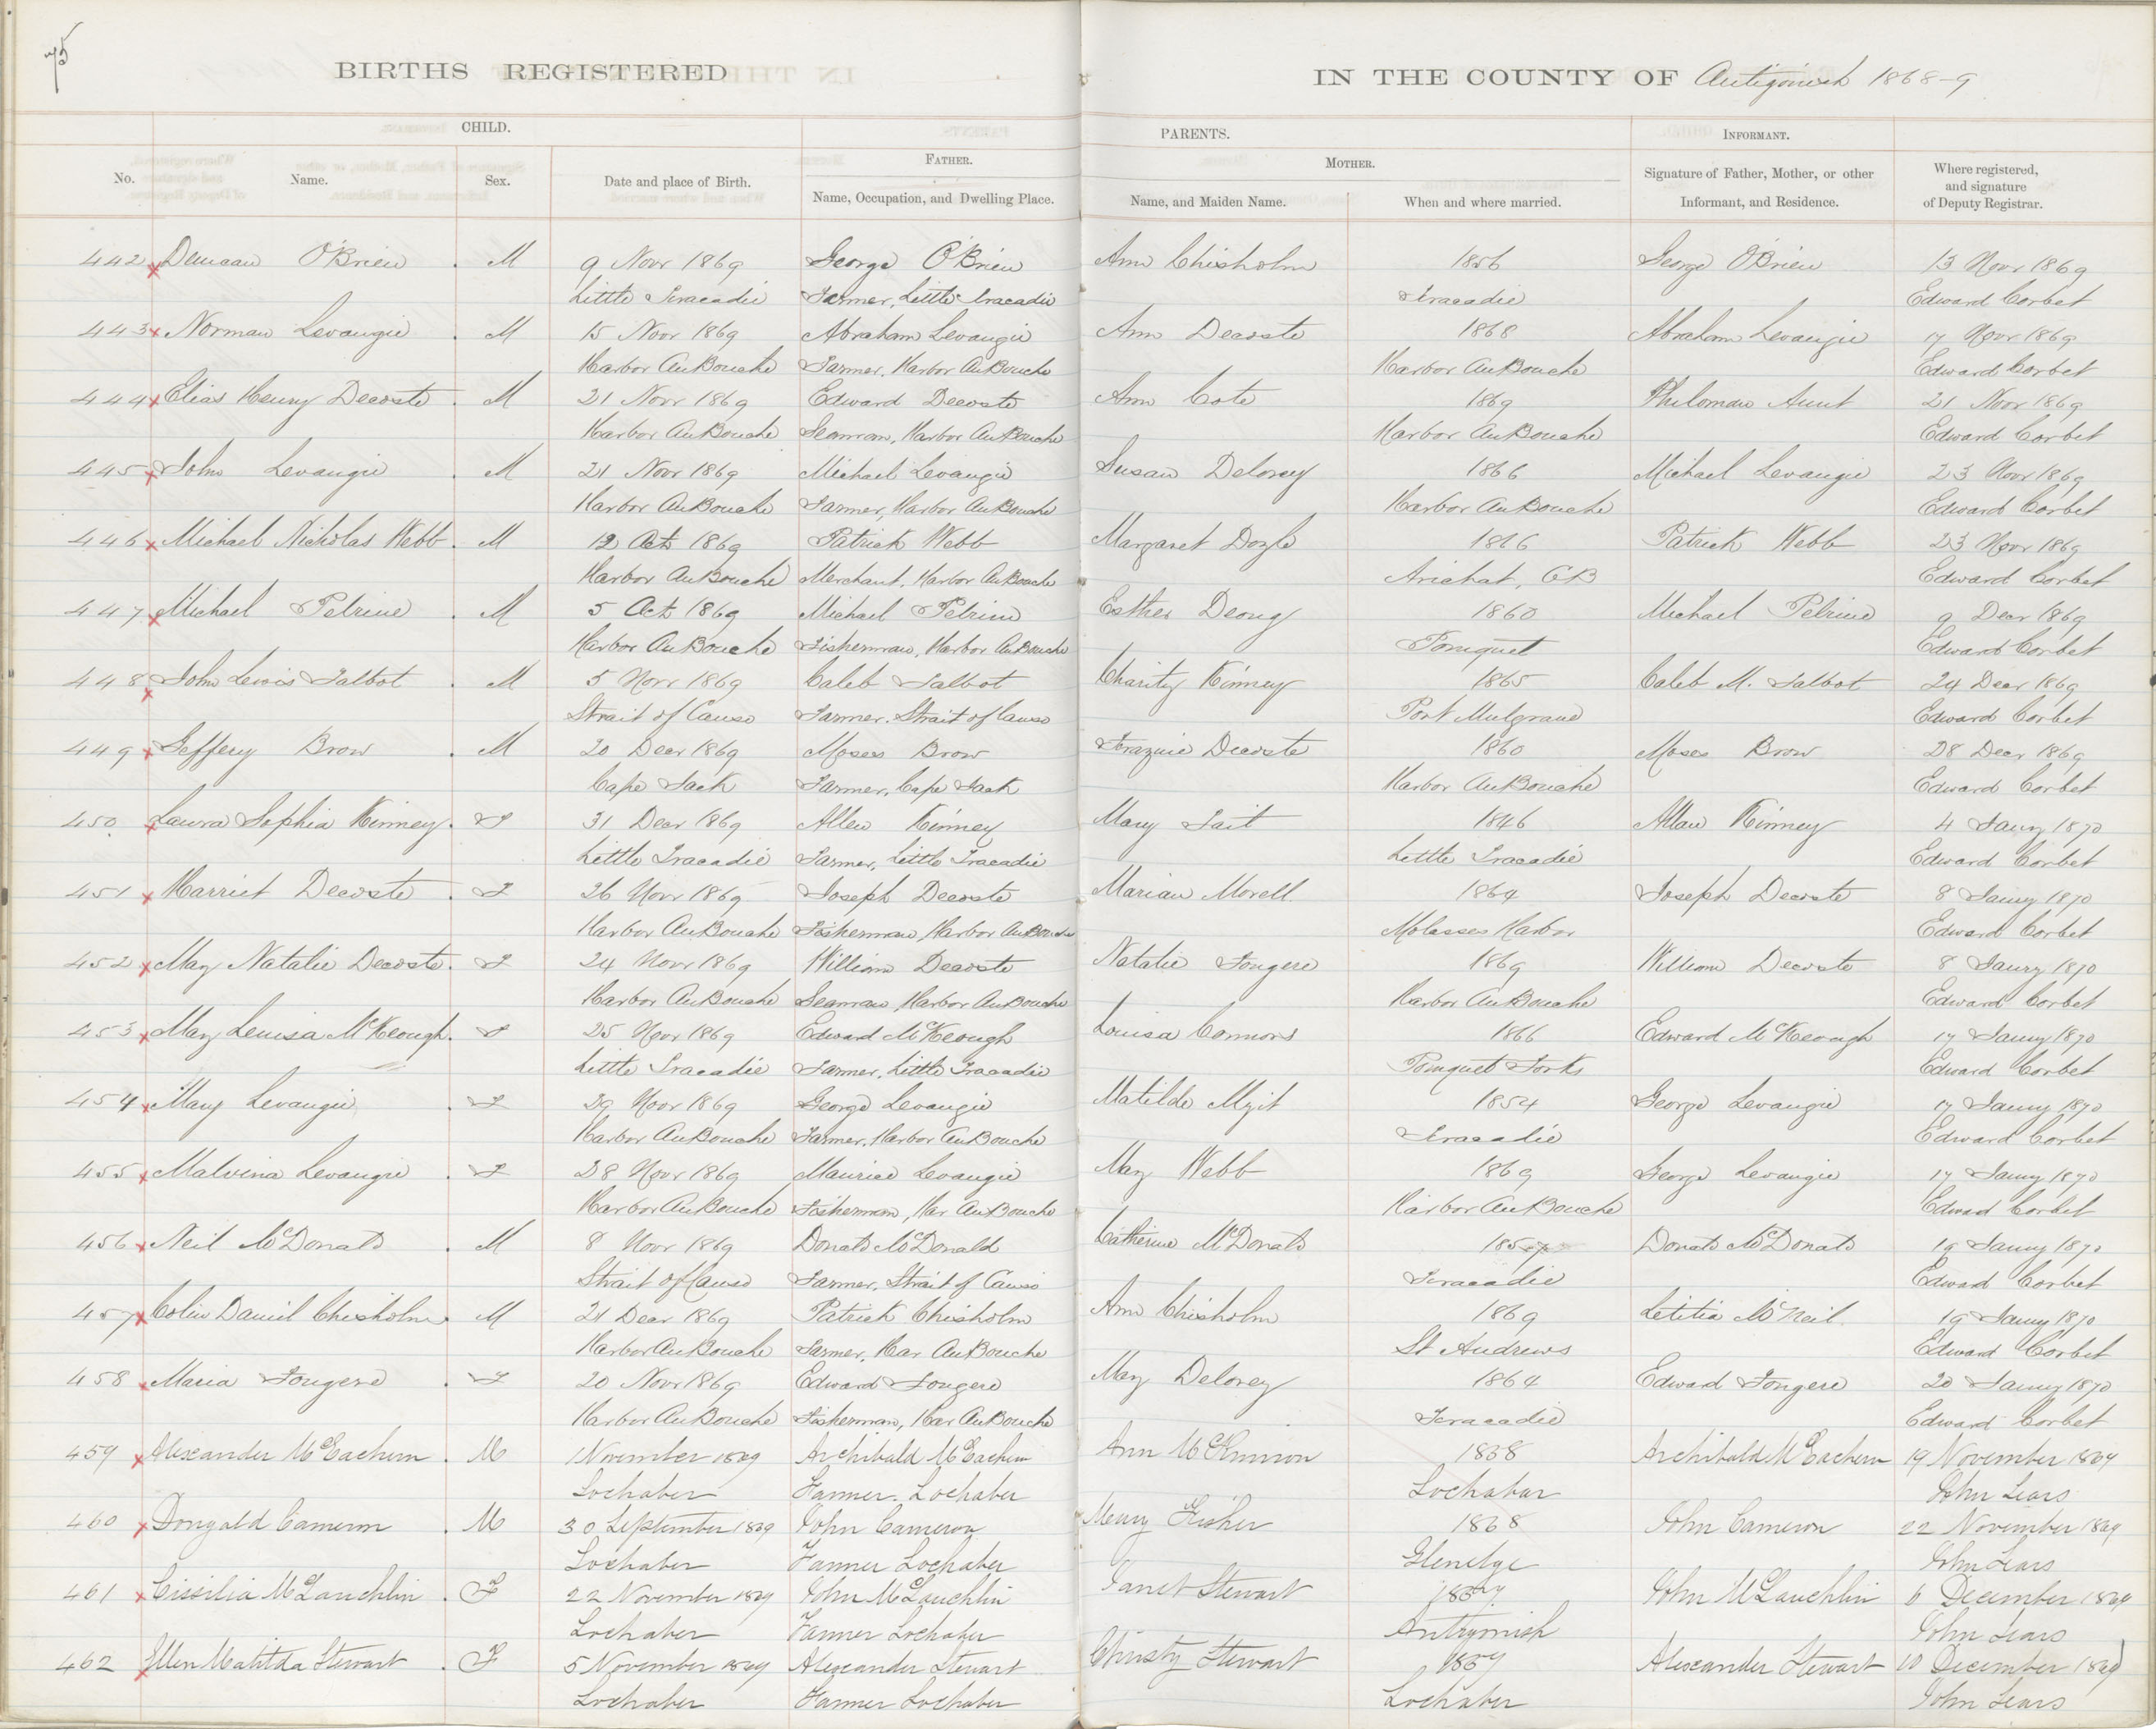 75
BIRTHS REGISTERED IN THE COUNTY OF Antigonish 1868-9
CHILD. PARENTS. INFORMANT.
FATHER. MOTHER.
No. Name. Sex. Date and place of Birth. Name, Occupation, and Dwelling Place. Name, and Maiden Name. When and where married. Signature of Father, Mother, or other Informant, and Residence. Where registered, and signature of Deputy Registrar.
442 Duncan O'Brien . M 9 Novr 1869 George O'Brien Ann Chisholm 1856 George O'Brien 13 Novr 1869
Little Tracadie Farmer, Little Tracadie Tracadie Edward Corbet
443 Norman Levangie . M 15 Novr 1869 Abraham Levangie Ann Decoste 1868 Abraham Levangie 17 Novr 1869
Harbor AuBouche Farmer, Harbor AuBouche Harbor AuBouche Edward Corbet
444 Elias Henry Decoste . M 21 Novr 1869 Edward Decoste Ann Cote 1869 Philoman Aunt 21 Novr 1869
Harbor AuBouche Seaman, Harbor AuBouche Harbor AuBouche Edward Corbet
445 John Levangie . M 21 Novr 1869 Michael Levangie Susan Delorey 1866 Michael Levangie 23 Novr 1869
Harbor AuBouche Farmer, Harbor AuBouche Harbor AuBouche Edward Corbet
446 Michael Nicholas Webb . M 12 Oct 1869 Patrick Webb Margaret Doyle 1866 Patrick Webb 23 Novr 1869
Harbor AuBouche Merchant, Harbor AuBouche Arichat, CB Edward Corbet
447 Michael Petrine . M 5 Oct 1869 Michael Petrine Esther Deong 1860 Michael Petrine 9 Decr 1869
Harbor AuBouche Fisherman, Harbor AuBouche Pomquet Edward Corbet
448 John Lewis Talbot . M 5 Novr 1869 Caleb Talbot Charity Kinney 1865 Caleb M. Talbot 24 Decr 1869
Strait of Canso Farmer. Strait of Canso Port Mulgrave Edward Corbet
449 Jeffery Brow . M 20 Decr 1869 Moses Brow Frazine Decoste 1860 Moses Brow 28 Decr 1869
Cape Jack Farmer, Cape Jack Harbor AuBouche Edward Corbet
450 Laura Sophia Kinney . F 31 Decr 1869 Allen Kinney Mary Tait 1846 Allan Kinney 4 Jany 1870
Little Tracadie Farmer, Little Tracadie Little Tracadie Edward Corbet
451 Harriet Decoste . F 26 Novr 1869 Joseph Decoste Marian Morell 1864 Joseph Decoste 8 Jany 1870
Harbor AuBouche Fisherman, Harbor AuBouche Molasses Harbor Edward Corbet
452 Mary Natalie Decoste . F 24 Novr 1869 William Decoste Natalie Fougere 1869 William Decoste 8 Jany 1870
Harbor AuBouche Seaman, Harbor AuBouche Harbor AuBouche Edward Corbet
453 Mary Louisa McKeough . F 25 Novr 1869 Edward McKeough Louisa Connors 1866 Edward McKeough 17 Jany 1870
Little Tracadie Farmer, Little Tracadie Pomquet Forks Edward Corbet
454 Mary Levangie . F 29 Novr 1869 George Levangie Matilde 1854 George Levangie 17 Jany 1870
Harbor AuBouche Farmer, Harbor AuBouche Tracadie Edward Corbet
455 Malvina Levangie . F 28 Novr 1869 Maurice Levangie Mary Webb 1869 George Levangie 17 Jany 1870
Harbor AuBouche Fisherman, Har AuBouche Harbor AuBouche Edward Corbet
456 Neil McDonald . M 8 Novr 1869 Donald McDonald Catherine McDonald 1857 Donald McDonald 19 Jany 1870
Strait of Canso Farmer, Strait of Canso Tracadie Edward Corbet
457 Colin Daniel Chisholm . M 21 Decr 1869 Patrick Chisholm Ann Chisholm 1869 Letitia McNeil 19 Jany 1870
Harbor AuBouche Farmer, Har AuBouche St Andrews Edward Corbet
458 Maria Fougere . F 20 Novr 1869 Edward Fougere Mary Delorey 1864 Edward Fougere 20 Jany 1870
Harbor AuBouche Fisherman, Har AuBouche Tracadie Edward Corbet
459 Alexander McEachern . M 1 November 1869 Archibald McEachern Ann McKinnon 1858 Archibald McEachern 19 November 1869
Lochaber Farmer. Lochaber Lochabar John Sears
460 Dongald Cameron . M 30 September 1869 John Cameron Mary Fisher 1868 John Cameron 22 November 1869
Lochaber Farmer Lochaber Glenelge John Sears
461 Cissilia McLauchlin . F 22 November 1869 John McLauchlin Janet Stewart John McLauchlin 6 December 1869
Lochaber Farmer Lochaber Antigonish John Sears
462 Ellen Matilda Stewart . F 5 November 1869 Alexander Stewart Christy Stewart 1857 Alexander Stewart 10 December 1869
Lochaber Farmer Lochaber Lochaber John Sears